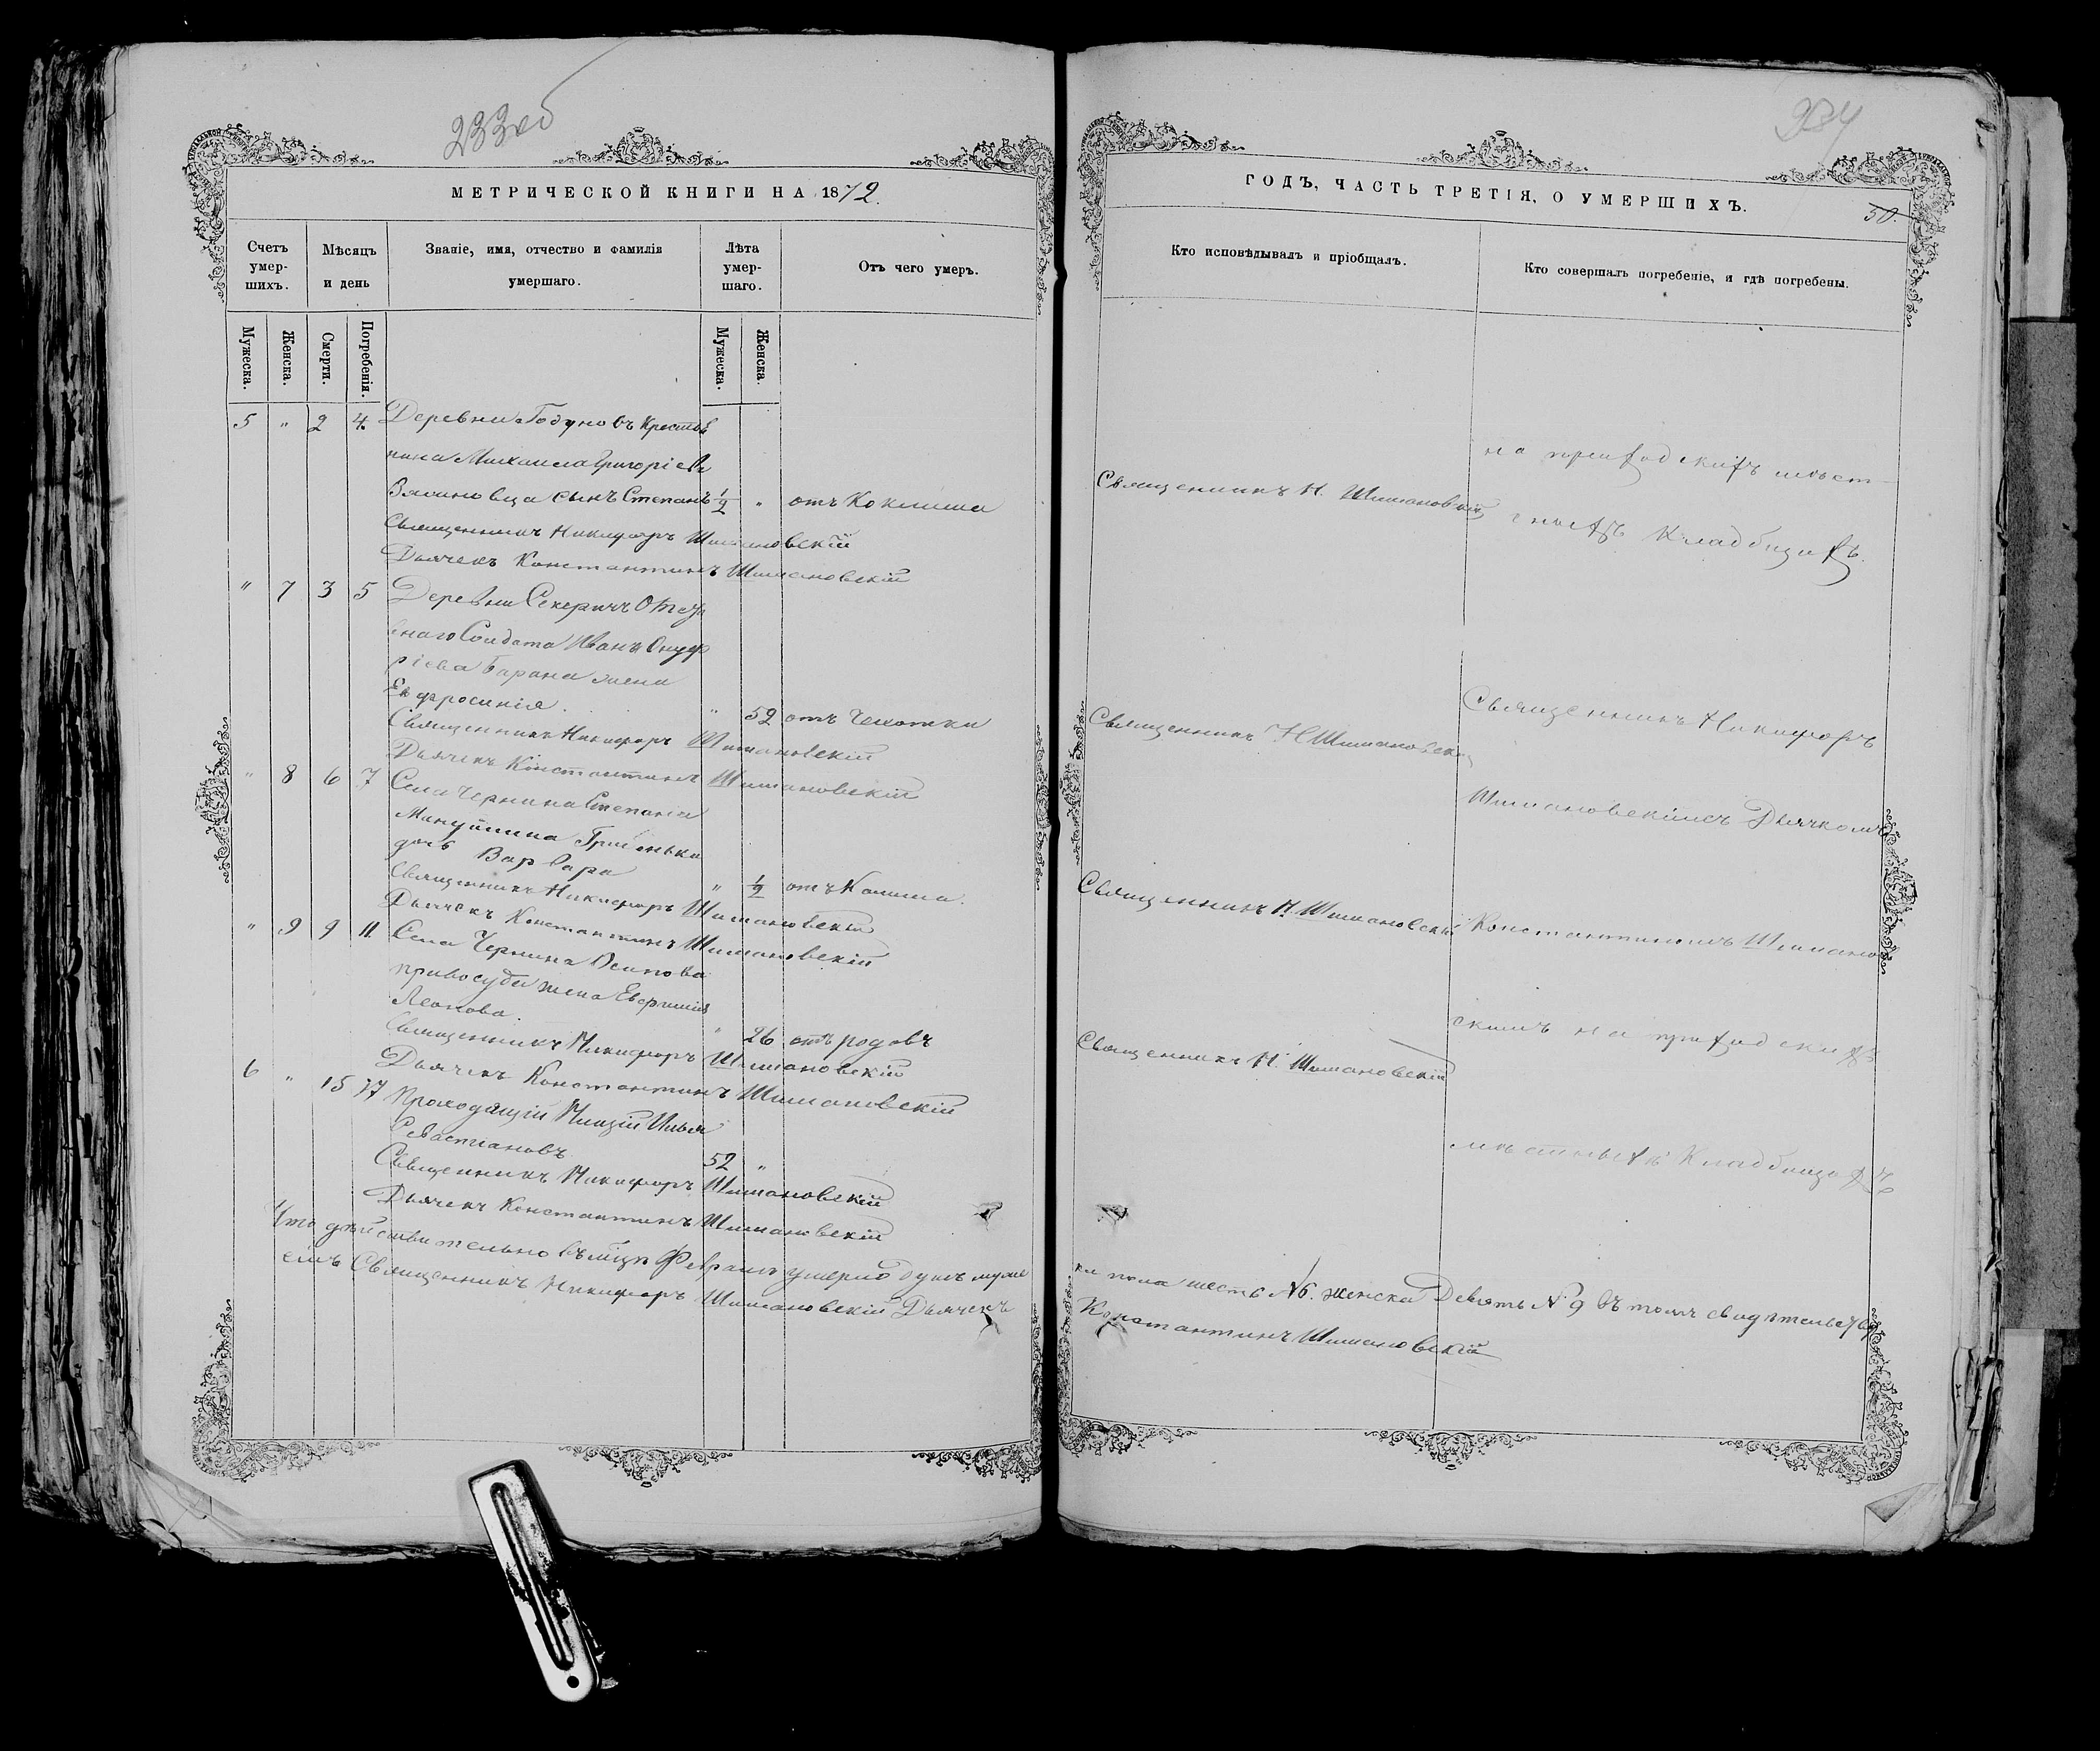 233об
МЕТРИЧЕСКОЙ КНИГИ НА 1872.
Счетъ умер-шихъ.
Мѣсяцъ и день
Званіе, имя, отчество и фамилія умершаго.
Лѣта умер-шаго.
Отъ чего умеръ.
Мужеска.
Женска.
Смерти.
Погребенія.
Мужеска.
Женска.
5 " 2 4. Деревни Годуновъ Крестья
нина Михаила Григоріева
сынъ Степанъ 1/2 " отъ Коклюша
Священникъ Никифоръ Шимановскій
Дьячекъ Константинъ Шимановскій
" 7 3 5 Деревни Секеричъ
Солдата Ивана Онуф
ріева Барана жена
Евфросинія. " 52 отъ Чахотки
Священникъ Никифоръ Шимановскій
Дьячекъ Константинъ Шимановскій
" 8 6 7 Села Чернина Степана
дочь Варвара
" 1/2 отъ Кашля.
Священникъ Никифоръ Шимановскій
Дьячекъ Константинъ Шимановскій
" 9 9 11. Села Чернина Осипова
жена
Леонова. " 26 отъ родовъ
Священникъ Никифоръ Шимановскій
Дьячекъ Константинъ Шимановскій
6 " 15 17 Проходящій Нищій Илья
Севастіановъ 52 "
Священникъ Никифоръ Шимановскій
Дьячекъ Константинъ Шимановскій
Что дѣйствительно въ мцѣ Февралѣ умерло душъ муже
Священникъ Никифоръ Шимановскій Дьячекъ
234
ГОДЪ, ЧАСТЬ ТРЕТІЯ, О УМЕРШИХЪ.
50.
Кто исповѣдывалъ и пріобщалъ.
Кто совершалъ погребеніе, и гдѣ погребены.
на приходскихъ мѣст-
Священникъ Н. Шимановскій
ныхъ Кладбищахъ.
Священникъ Никифоръ
Священникъ Н Шимановскій
Шимановскій съ Дьячкомъ
Священникъ Н. Шимановскій
Константиномъ Шиманов
скимъ на приходскихъ
Священникъ Н. Шимановскій
мѣстныхъ Кладбищахъ
ка пола шесть №6. женска Девять №9 въ томъ свидѣтельству
Константинъ Шимановскій